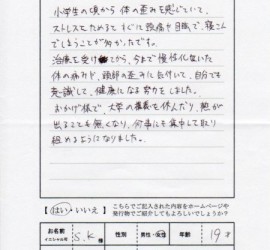 小学生の頃から体の歪みを感じていて、
ストレスをためるとすぐに頭痛や目眩で、寝こん
でしまうことが多かったです。
治療を受けてから、今まで慢性化ないた
体の痛みや、頭部の歪みに気付いて、自分でも
意識して、健康になる努力をしました。
おかげ様で、大学の講義を休んだり、熱が
出ることも無くなり、何事にも集中して取り
組めるようになりました。
【はい・いいえ】
こちらでご記入された内容をホームページや
発行物でご紹介してもよろしいでしょうか？
お名前
イニシャル可
S.K 様
性別
男性・女性
年齢
19才